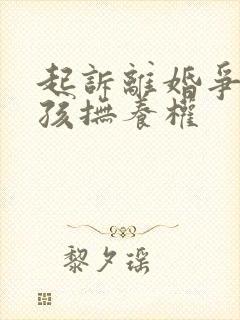 起訴離婚爭
孩撫養權
黎夕瑶